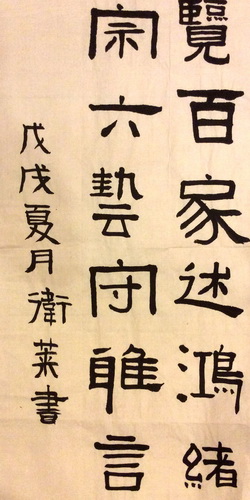 覽百家述鴻緒
宗六藝守雅言
戊戌夏月衛萊書